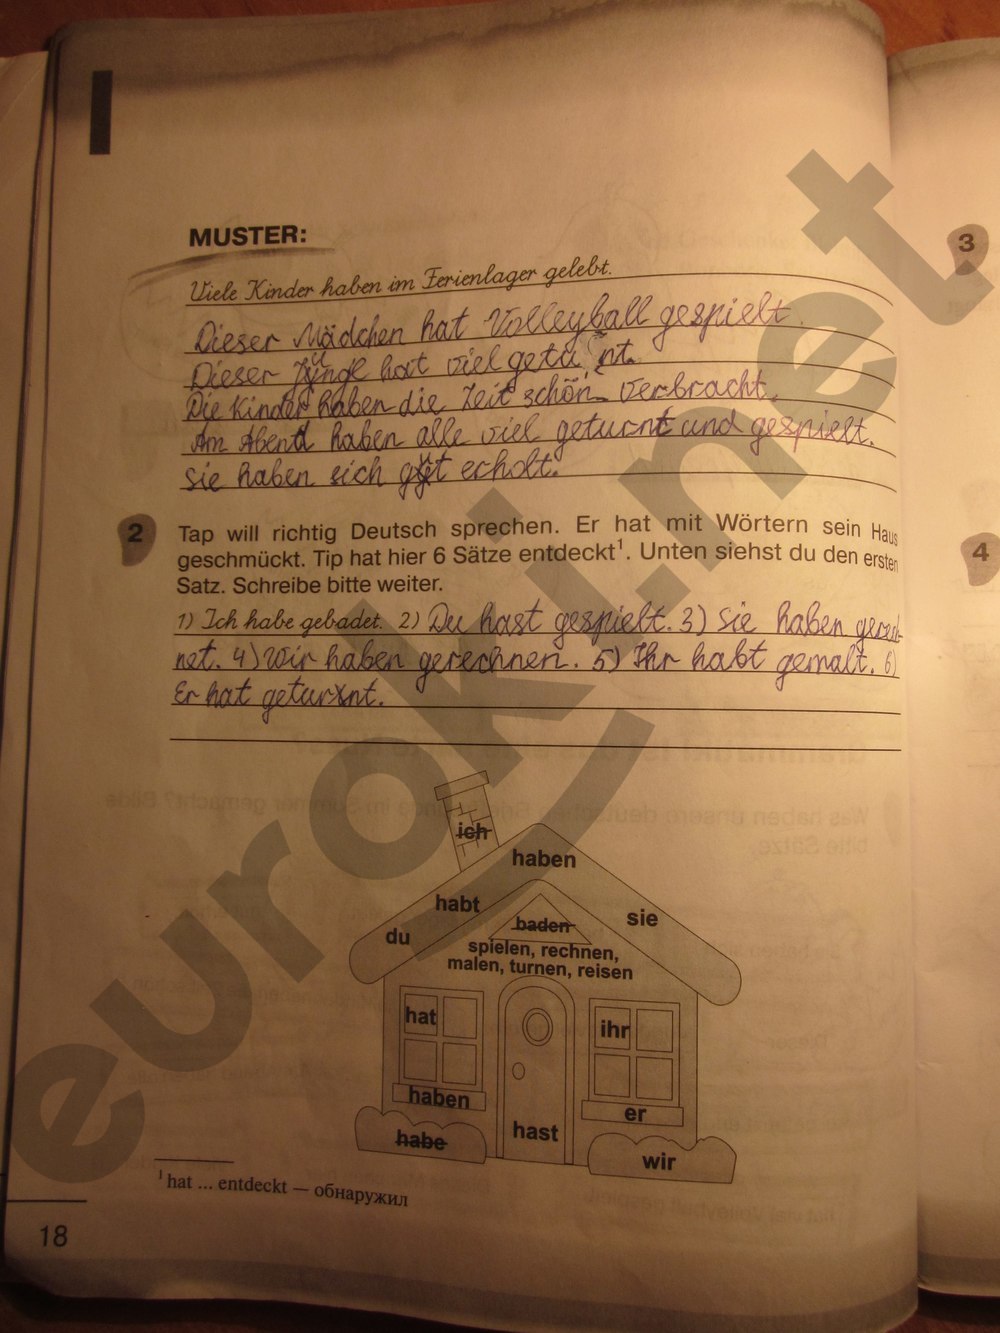 MUSTER:
Viele Kinder haben im Ferienlager gelebt.
Dieser Mädchen hat Volleyball gespielt.
Dieser Junge hat viel geturnt.
Die Kinder haben die Zeit schön verbracht.
Am Abend haben alle viel geturnt und gespielt.
Sie haben sich gut erholt.
2
Tap will richtig Deutsch sprechen. Er hat mit Wörtern sein Haus
geschmückt. Tip hat hier 6 Sätze entdeckt¹. Unten siehst du den ersten
Satz. Schreibe bitte weiter.
1) Ich habe gebadet. 2) Du hast gespielt. 3) Sie haben
net. 4) Wir haben gerechnen. 5) Ihr habt gemalt. 6)
Er hat geturnt.
ich
haben
habt
sie
du
baden
spielen, rechnen,
malen, turnen, reisen
hat
ihr
haben
er
habe
hast
wir
¹ hat ... entdeckt — обнаружил
18
3
4
euroki.net